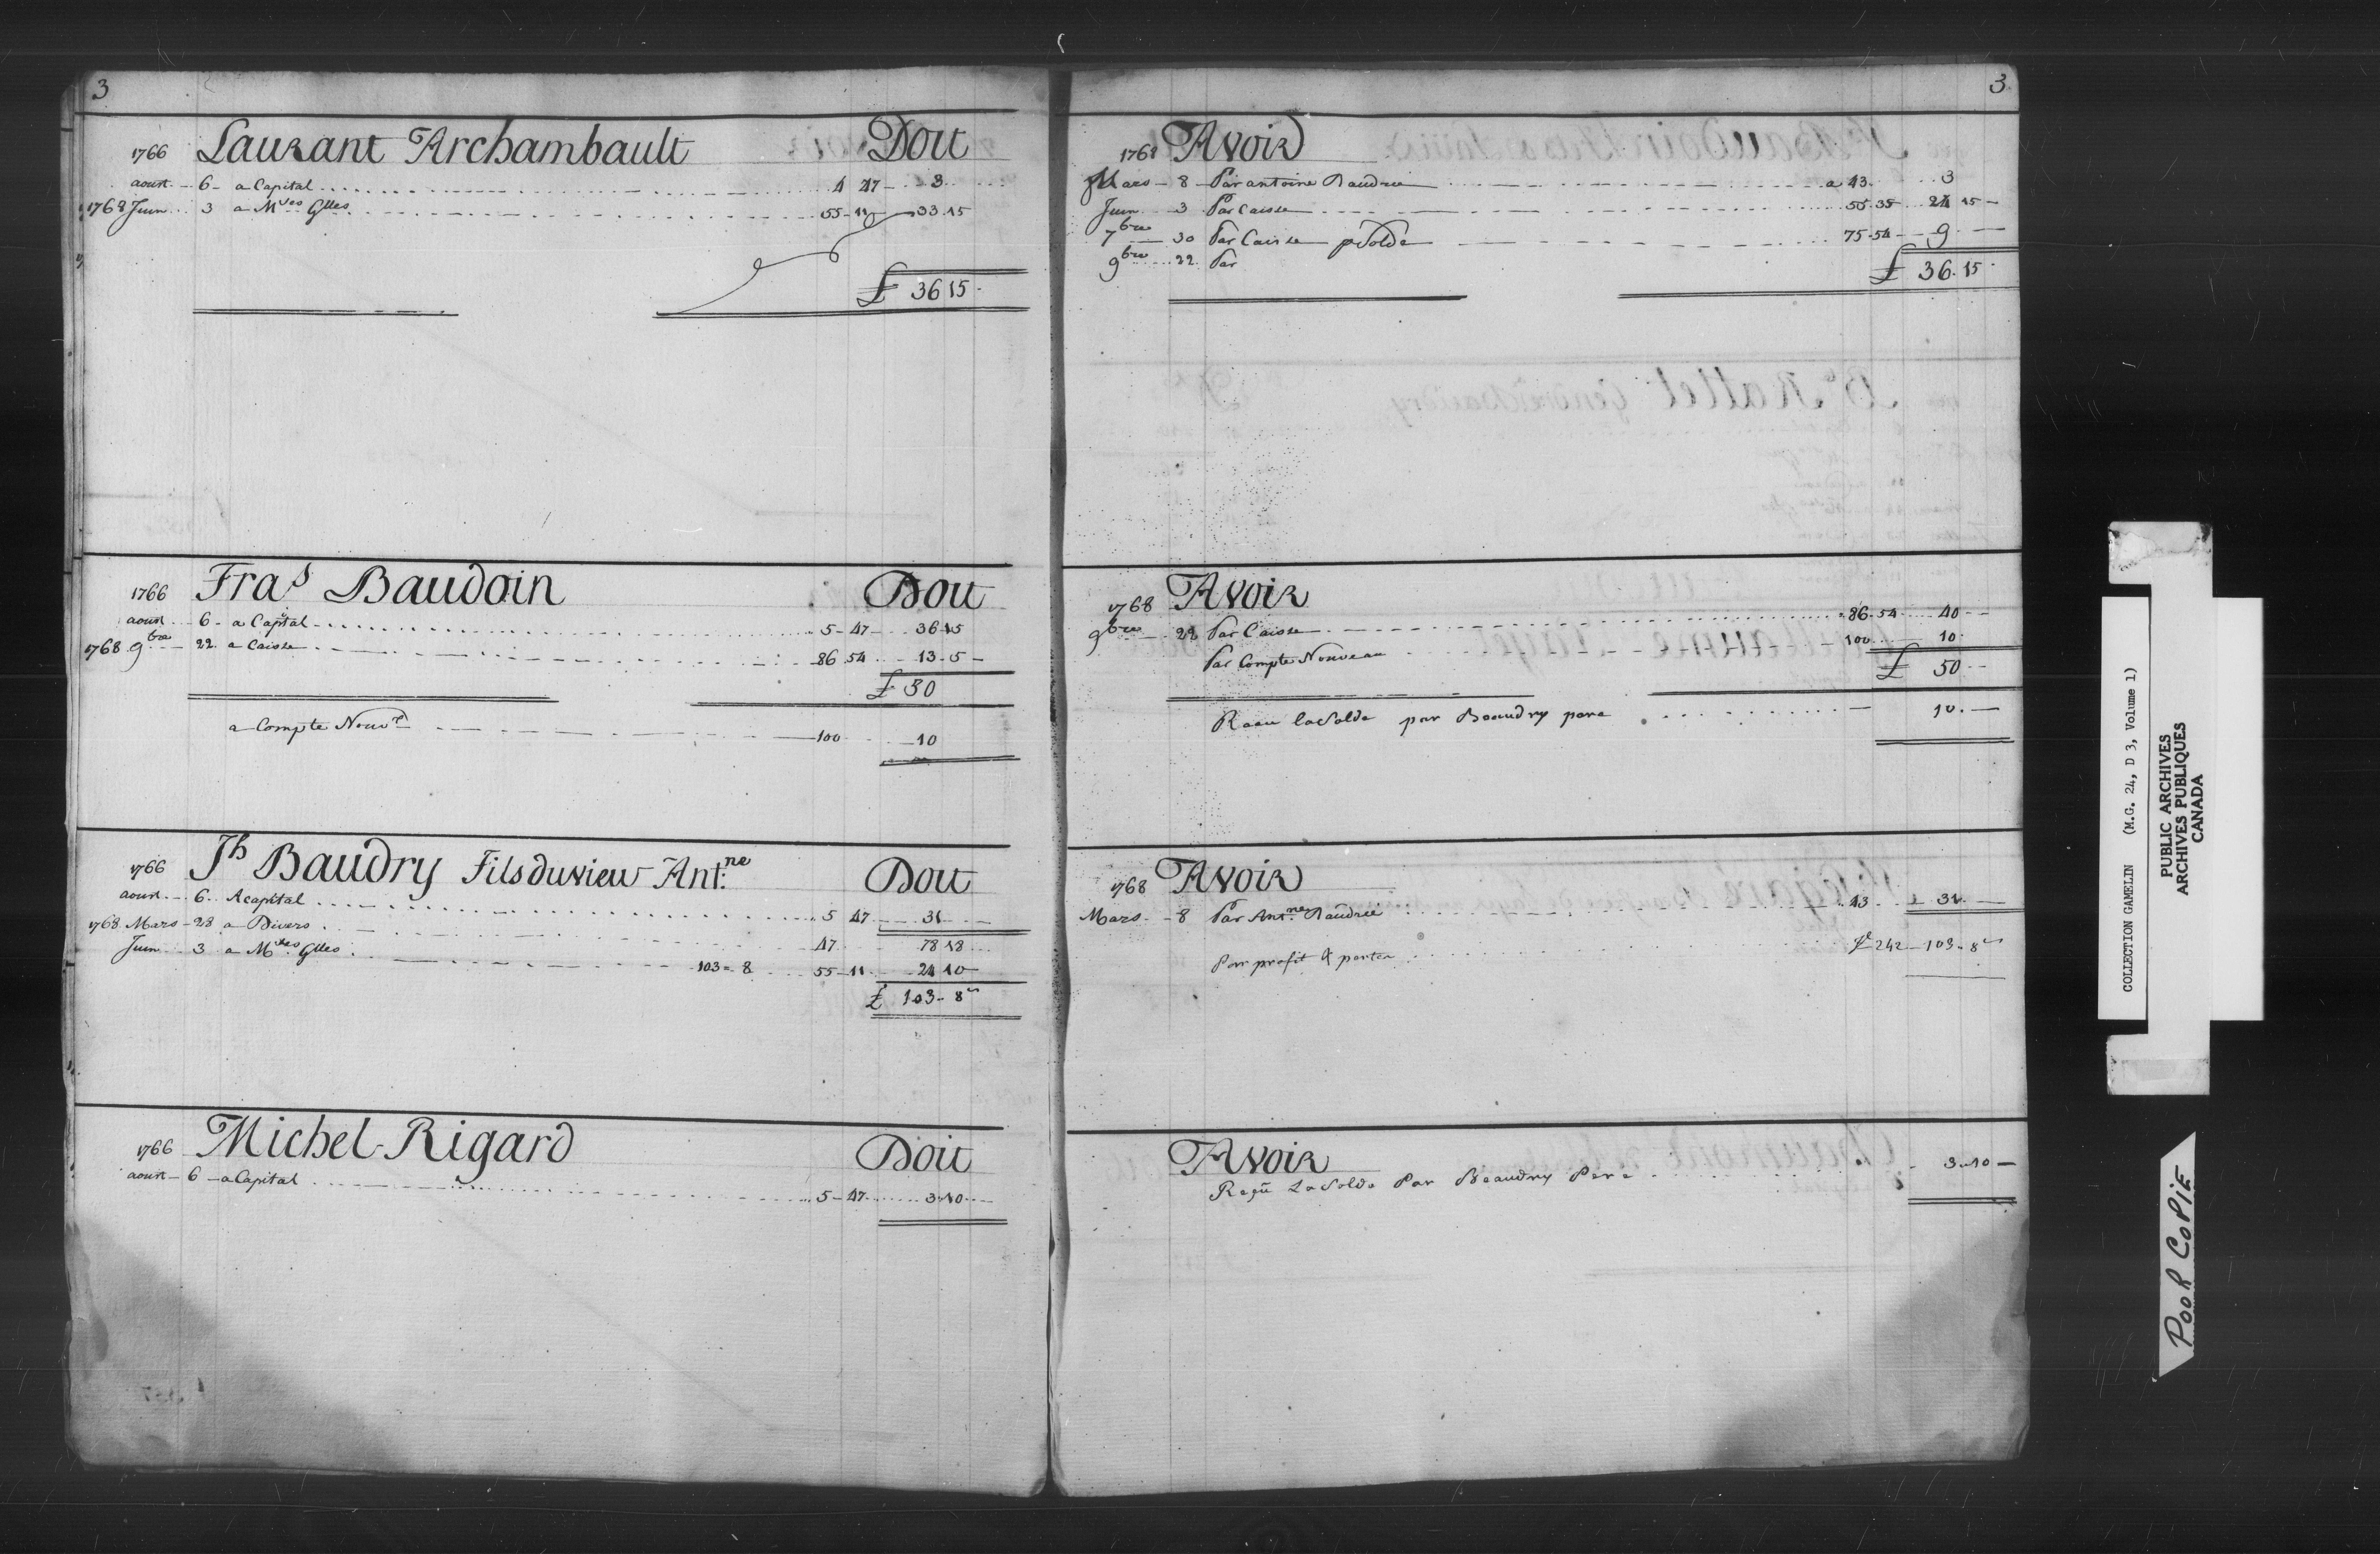 3
1766 Laurant Archambault Doit
aoust 6 a Capital 4 47 3
1768 Juin 3 a M.ses Glles 55-11 33.15
£ 36 15
1766 Fras Baudoin Doit
aoust 6 a Capital 5-47 36 15
1768 9bre 22 a Caisse 86 54 13-5
£ 50
a Compte Nouv.e 100 10
1766 Jh Baudry Fils du view Ant.ne Doit
aoust 6 A capital 5 47 31
1768 Mars 28 a Divers 47 78 18
Juin 3 a M.ses Glles 103=8 55-11 24 10
£ 103-8
1766 Michel Rigard Doit
aoust 6 a Capital 5-47 3.10
3
1768 Avoir
Mars 8 Par antoine Baudrie a 43 3
Juin 3 Par Caisse 55.35 24 15
7bre 30 Par Caisse p Solde 75-54 9
9bre 22 Par
£ 36.15
1768 Avoir
9bre 22 Par Caisse 86.54 40
Par Compte Nouveau 100 10
£ 50
Recu la Solde par Beaudry pere 10
1768 Avoir
Mars 8 Par Ant.ne Baudrie 43 31
Par profit & perte 242 103-8
Avoir
Reçu La Solde Par Beaudry Pere 3.10
COLLECTION GAMELIN (M.G. 24, D 3, Volume 1)
PUBLIC ARCHIVES
ARCHIVES PUBLIQUES
CANADA
POOR COPIE